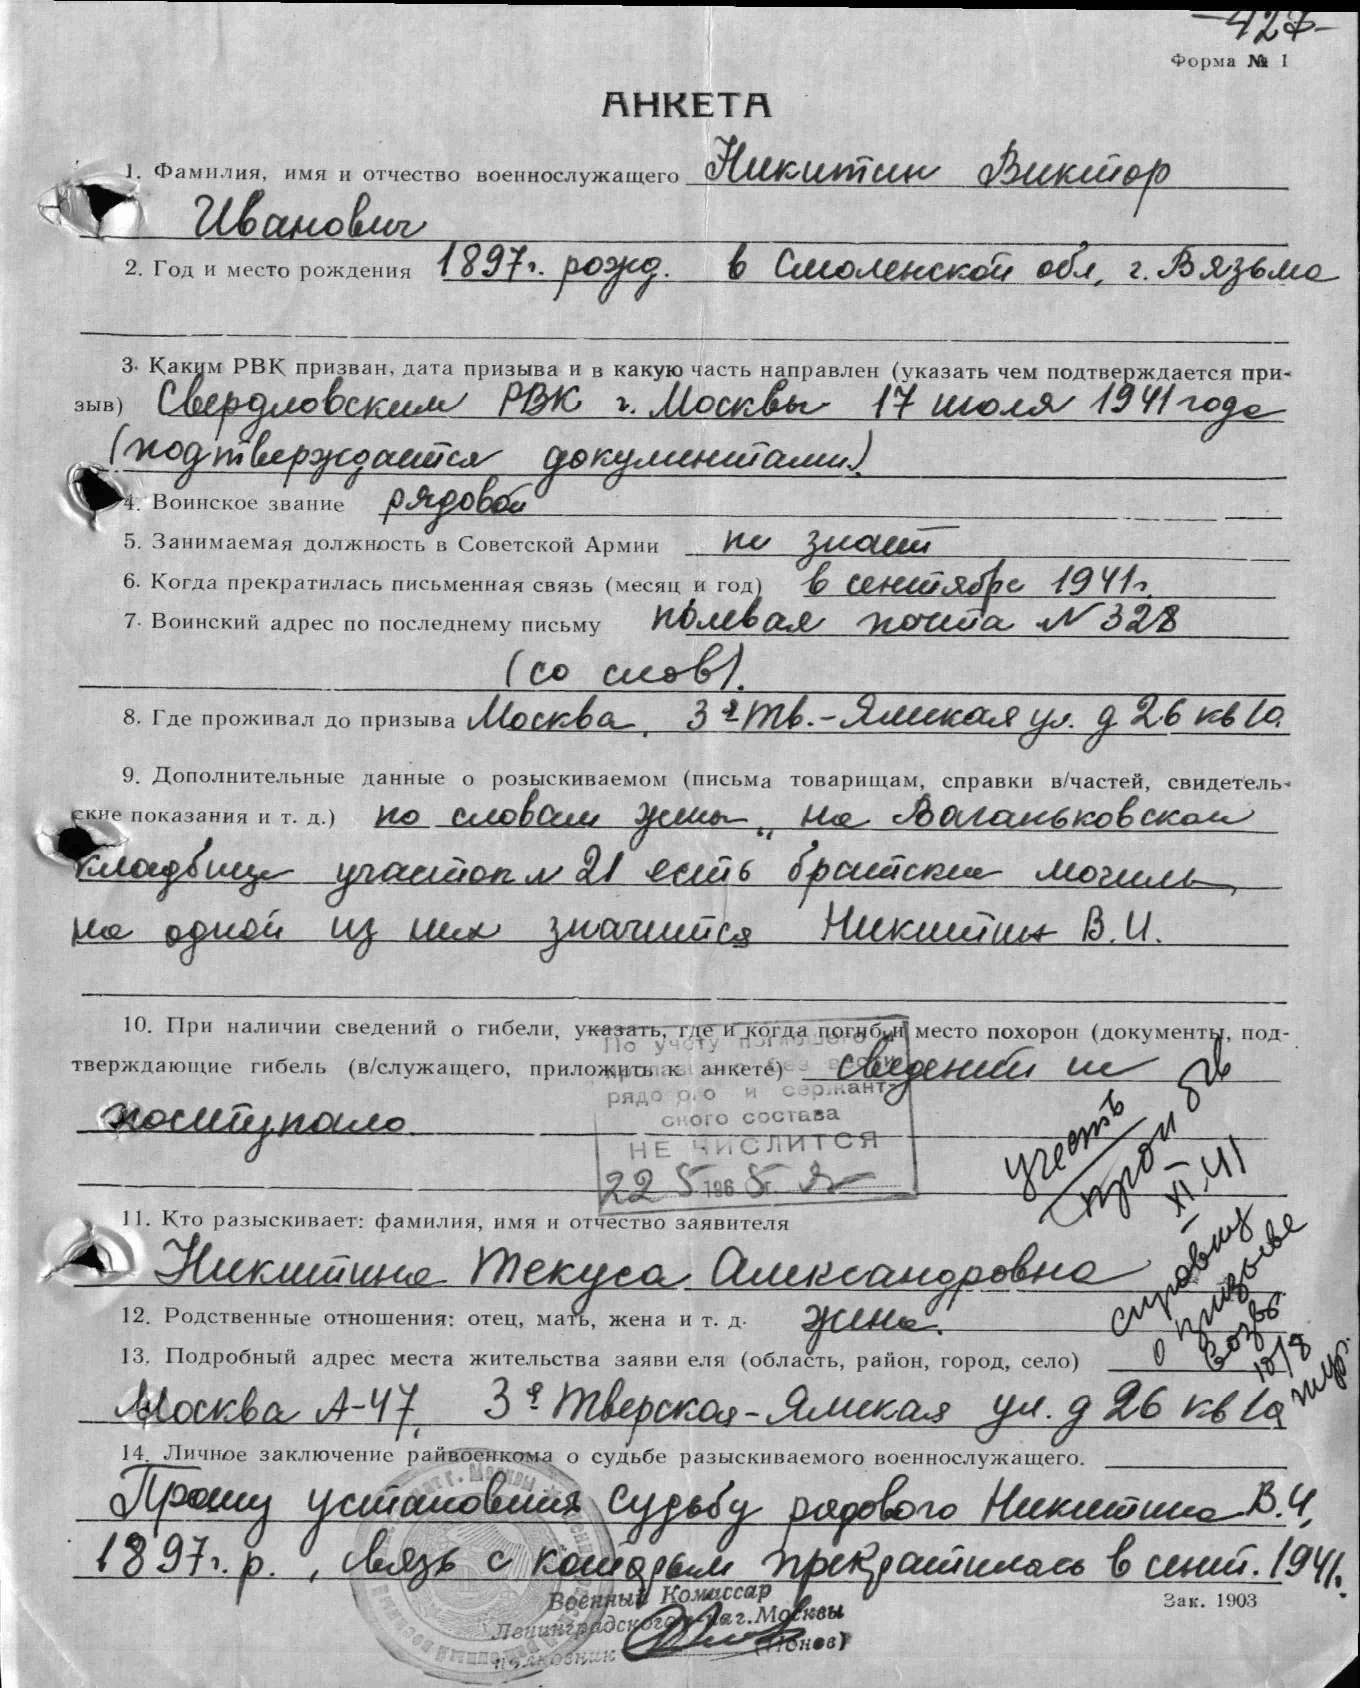 -427-
Форма № 1
АНКЕТА
1. Фамилия, имя и отчество военнослужащего Никитин Виктор
Иванович
2. Год и место рождения 1897г. рожд. в Смоленской обл, г. Вязьма
3. Каким РВК призван, дата призыва и в какую часть направлен (указать чем подтверждается при-
зыв) Свердловским РВК г. Москвы 17 июля 1941 года
(подтверждается документами)
4. Воинское звание рядовой
5. Занимаемая должность в Советской Армии не знает
6. Когда прекратилась письменная связь (месяц и год) в сентябре 1941г.
7. Воинский адрес по последнему письму полевая почта N 328
(со слов).
8. Где проживал до призыва Москва, 3я Тв.-Ямская ул. д 26 кв 10.
9. Дополнительные данные о розыскиваемом (письма товарищам, справки в/частей, свидетель-
ские показания и т. д.) по словам жены „ на Ваганьковском
кладбище участок N 21 есть братские могилы,
на одной из них значится Никитин В.И.
10. При наличии сведений о гибели, указать, где и когда погиб и место похорон (документы, под-
тверждающие гибель (в/служащего, приложить к анкете) сведений не
поступало
По учету погибшего и
пропавшего без вести
рядового и сержант-
ского состава
НЕ ЧИСЛИТСЯ
22 5 1965г.
учесть
проп б/в
XI.41
справку
о призыве
возвр.
10/8
11. Кто разыскивает: фамилия, имя и отчество заявителя
Никитина Текуса Александровна
12. Родственные отношения: отец, мать, жена и т. д. жена.
13. Подробный адрес места жительства заяви еля (область, район, город, село)
Москва А-47, 3я Тверская-Ямская ул. д 26 кв 10
14. Личное заключение райвоенкома о судьбе разыскиваемого военнослужащего.
Прошу установить судьбу рядового Никитина В.И,
1897г.р., связь с которым прекратилась в сент. 1941г.
Военный Комиссар
Ленинградского р-на г. Москвы
полковник (Попов)
Зак. 1903